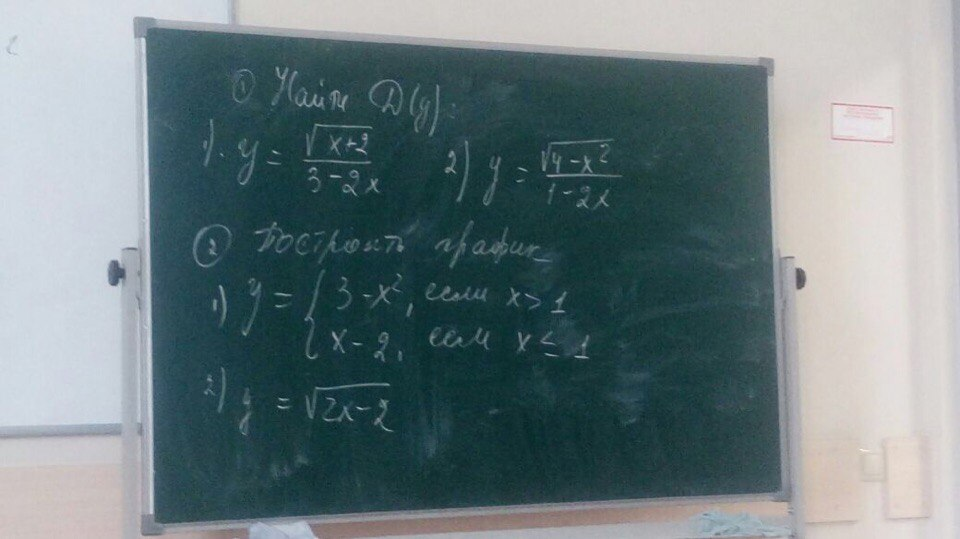 ① Найти D(y):
1). y = √(x+2) / (3-2x) 2) y = √(4-x²) / (1-2x)
② Построить график
1) y = { 3-x², если x > 1
x-2, если x ≤ 1
2) y = √(2x-2)